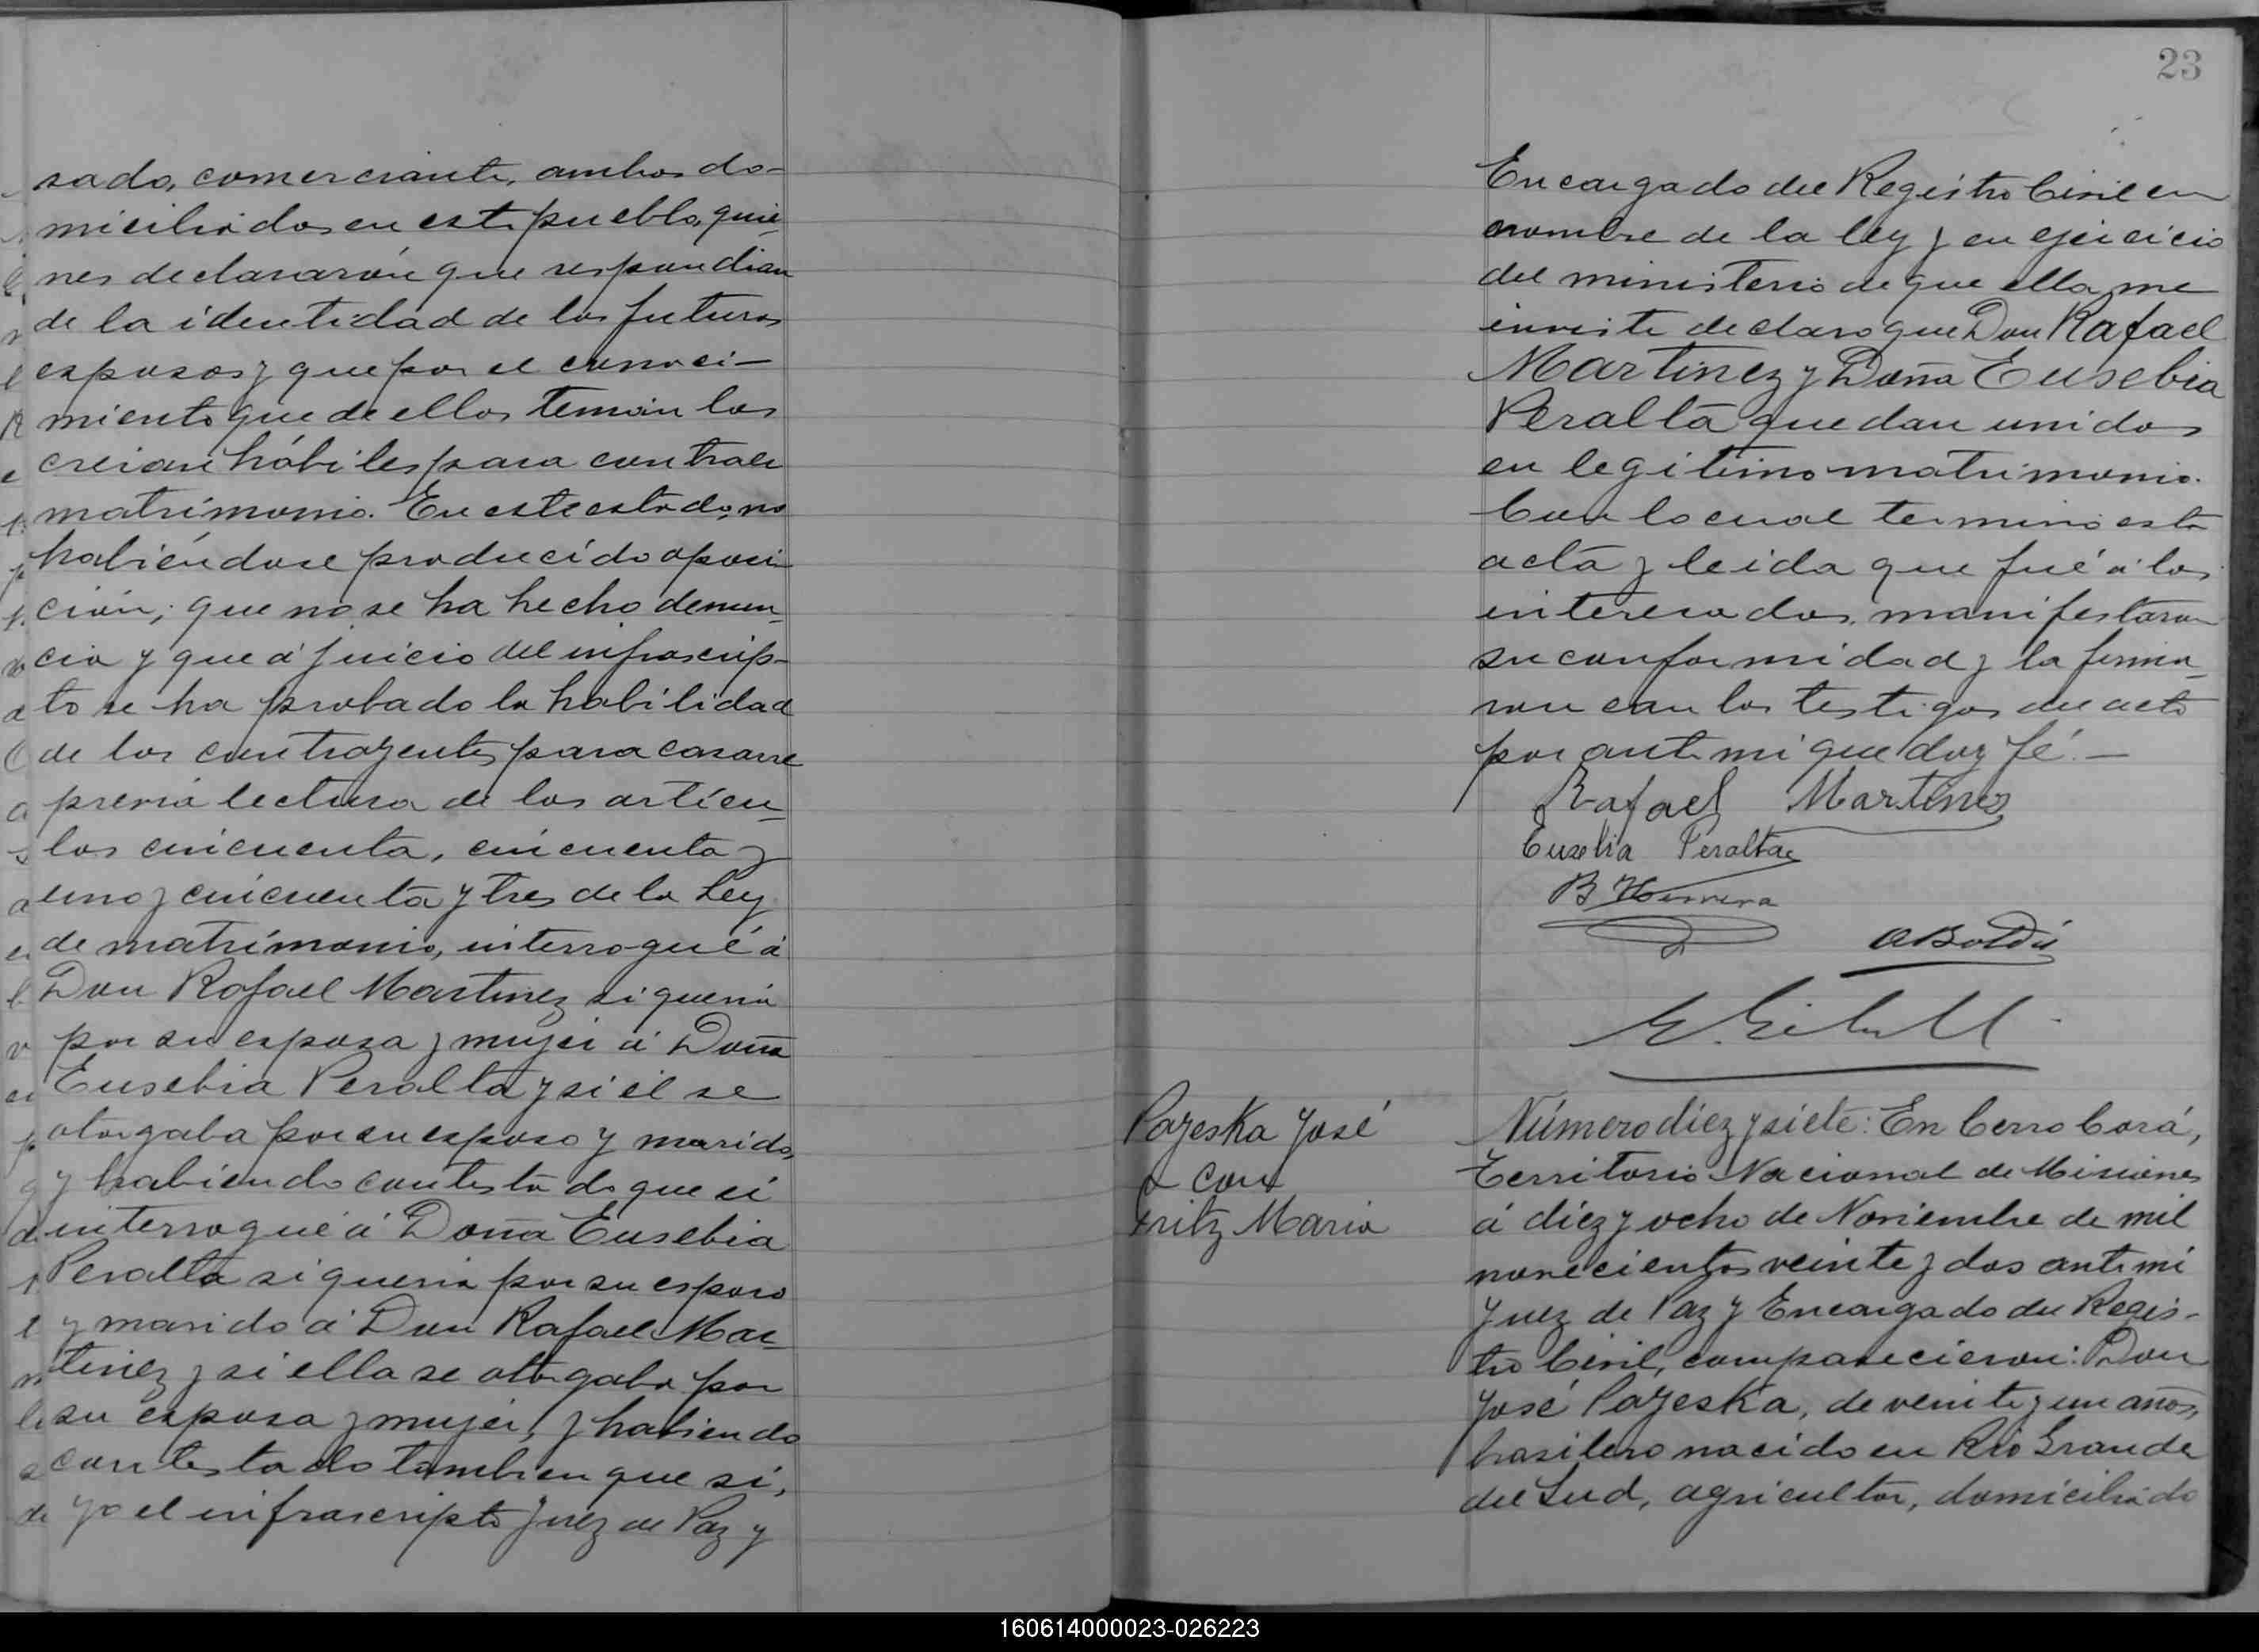 sado, comerciante, ambos do-
miciliados en este pueblo, quie-
nes declararón que respondian
de la identidad de los futuros
esposos y que por el conoci-
miento que de ellos tenián los
creian hábiles para contraer
matrimonio. En este estado, no
habiéndose producido oposi-
ción; que no se ha hecho denun-
cia y que á juicio del infrascrip-
to se ha probado la habilidad
de los contrayentes para casarse
previa lectura de los artícu-
los cincuenta, cincuenta y
uno y cincuenta y tres de la Ley
de matrimonio, interrogué á
Don Rafael Martinez si queria
por su esposa y mujer á Doña
Eusebia Peralta y si él se
otorgaba por su esposo y marido,
y habiendo contestado que sí
interrogué á Doña Eusebia
Peralta si queria por su esposo
y marido á Don Rafael Mar-
tinez y si ella se otorgaba por
su esposa y mujer, y habiendo
contestado tambien que sí,
yo el infrascripto Juez de Paz y
23
Encargado del Registro Civil en
nombre de la ley y en ejercicio
del ministerio de que ella me
inviste declaro que Don Rafael
Martinez y Doña Eusebia
Peralta quedan unidos
en legitimo matrimonio.
Con lo cual terminó esta
acta y leida que fué á los
interesados, manifestaron
su conformidad y la firma-
ron con los testigos del acto
por ante mi que doy fé.—
Rafael Martinez
Eusebia Peralta
B Herrera
Pajeska José
con
Fritz Maria
Número diez y siete: En Cerro Corá,
Territorio Nacional de Misiones
á diez y ocho de Noviembre de mil
novecientos veinte y dos ante mi
Juez de Paz y Encargado del Regis-
tro Civil, comparecieron: Don
José Pajeska, de veinte y un años,
brasilero nacido en Rio Grande
del Sud, agricultor, domiciliado
160614000023-026223